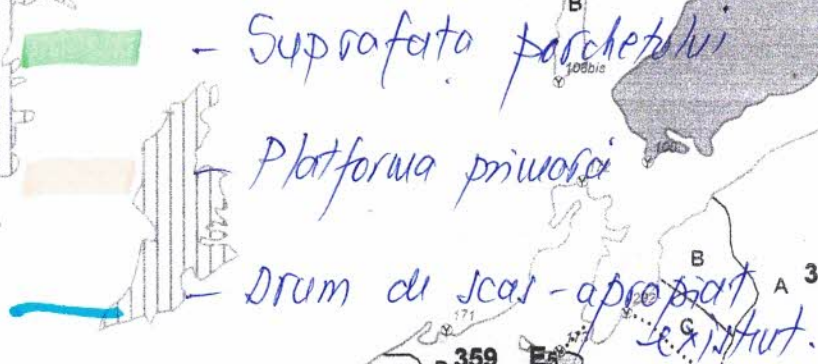 B
- Suprafața parchetului
108bis
- Platforma primară
B
B
A 3
- Drum de scos-apropiat
existent.
171
C
359